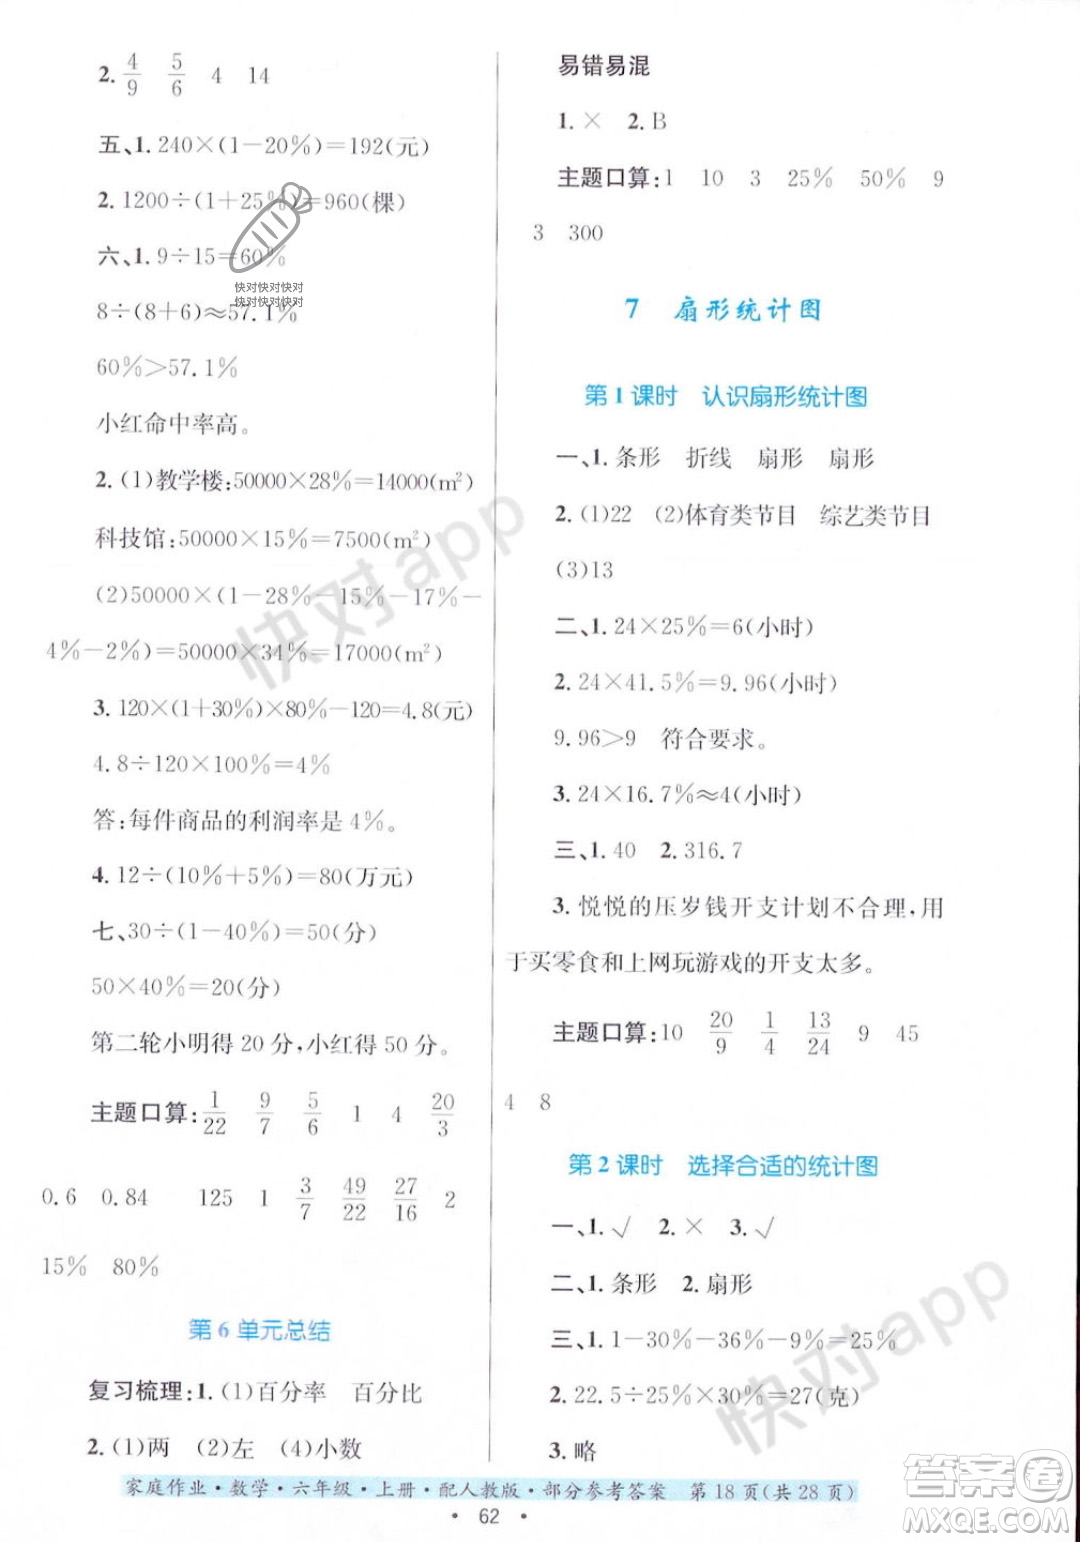 2. 4/9 5/6 4 14
五、1. 240×(1-20%)=192(元)
2. 1200÷(1+25%)=960(棵)
六、1. 9÷15=60%
8÷(8+6)≈57.1%
60%>57.1%
小红命中率高。
2. (1)教学楼:50000×28%=14000(m²)
科技馆:50000×15%=7500(m²)
(2)50000×(1-28%-15%-17%-
4%-2%)=50000×34%=17000(m²)
3. 120×(1+30%)×80%-120=4.8(元)
4.8÷120×100%=4%
答:每件商品的利润率是4%。
4. 12÷(10%+5%)=80(万元)
七、30÷(1-40%)=50(分)
50×40%=20(分)
第二轮小明得20分,小红得50分。
主题口算: 1/22 9/7 5/6 1 4 20/3
0.6 0.84 125 1 3/7 49/22 27/16 2
15% 80%
第6单元总结
复习梳理:1. (1)百分率 百分比
2. (1)两 (2)左 (4)小数
易错易混
1. × 2. B
主题口算:1 10 3 25% 50% 9
3 300
7 扇形统计图
第1课时 认识扇形统计图
一、1. 条形 折线 扇形 扇形
2. (1)22 (2)体育类节目 综艺类节目
(3)13
二、1. 24×25%=6(小时)
2. 24×41.5%=9.96(小时)
9.96>9 符合要求。
3. 24×16.7%≈4(小时)
三、1. 40 2. 316.7
3. 悦悦的压岁钱开支计划不合理,用
于买零食和上网玩游戏的开支太多。
主题口算:10 20/9 1/4 13/24 9 45
4 8
第2课时 选择合适的统计图
一、1. √ 2. × 3. √
二、1. 条形 2. 扇形
三、1. 1-30%-36%-9%=25%
2. 22.5÷25%×30%=27(克)
3. 略
家庭作业·数学·六年级·上册·配人教版·部分参考答案 第18页(共28页)
· 62 ·
快对快对快对
快对快对快对
快对app
快对app
答案圈
MXQE.COM